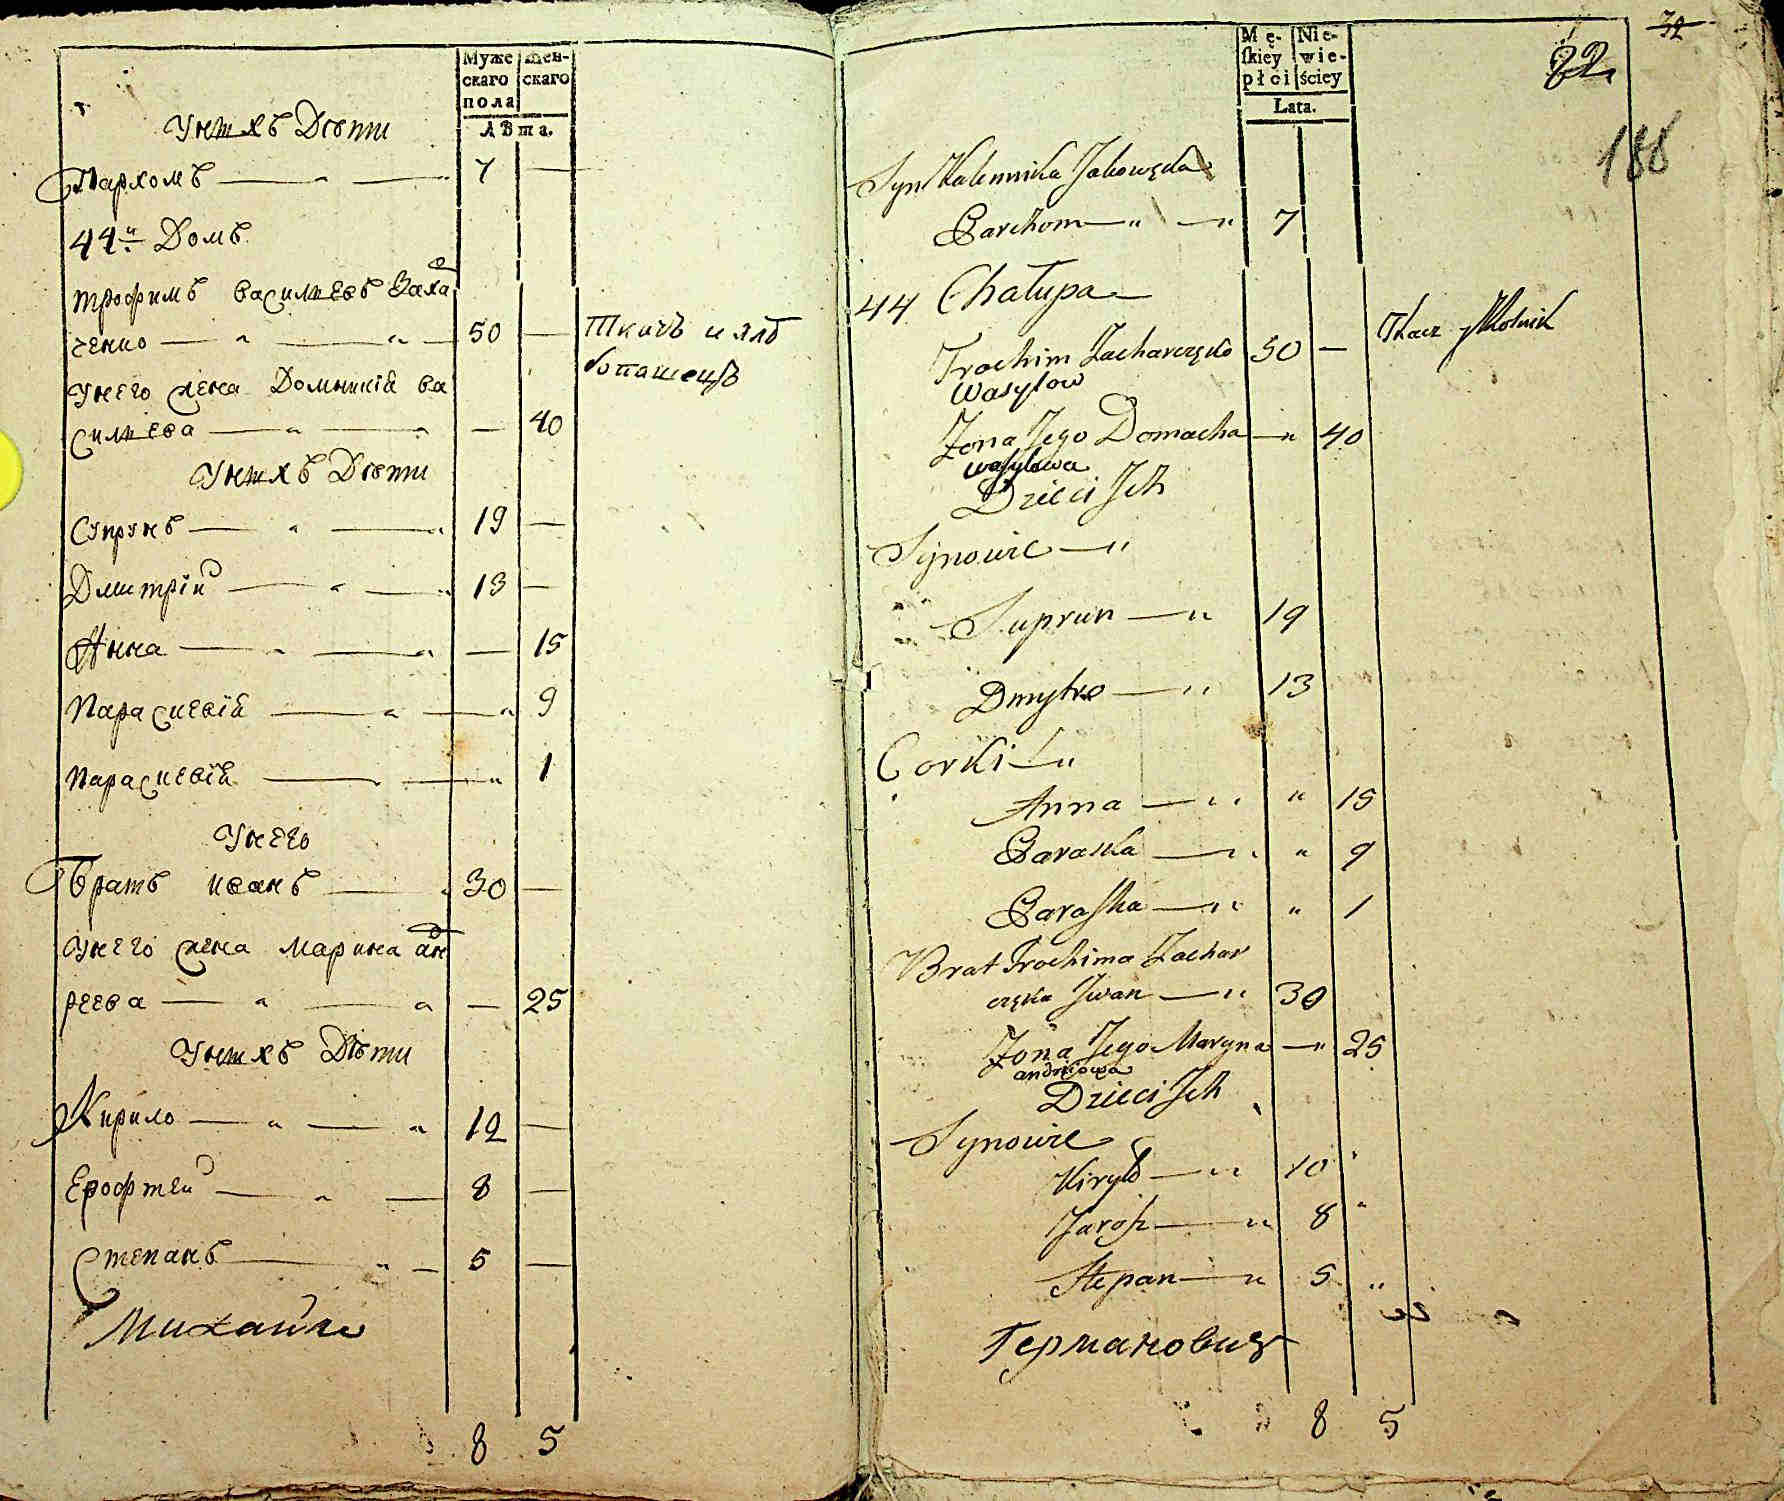 Муже
скаго
пола
Жен-
скаго
лѣта.
Унихъ Дѣти
Пархомъ — „ — 7 —
44й Домъ
трофимъ василіевъ Заха
ченко — „ — „ — 50 — Ткачъ и хлѣ
бопашецъ
Унего жена Домникія ва
силіева — „ — „ — 40
Унихъ Дѣти
Супрунъ — „ — „ 19 —
Дмитрій — „ — „ 13 —
Анна — „ — „ — 15
Параскевія — „ — „ 9
Параскевія — — „ 1
Унего
Братъ иванъ — „ 30 —
Унего жена Марина ан
реева — „ — „ — 25
Унихъ Дѣти
Кирило — „ — „ 12 —
Ерофтей — „ — 8 —
Степанъ — „ — 5 —
Михайло
8 5
32
82
188
Mę-
skiey
płci
Nie-
wie-
ściey
Lata.
Syn Jakowęka
Parchom — „ — „ 7
44 Chałupa —
Trochim Zacharczęko 50 — Tkacz y Rolnik
Wasylow
Żona Jego Domacha — „ 40
wasylowa
Dzieci Ich
Synowie — „
Suprun — „ 19
Dmytro — „ 13
Corki — „
Anna — „ „ 15
Paraska — „ „ 9
Paraska — „ „ 1
Brat Trochima Zachar
częka Iwan — „ 30
Żona Jego Maryna — „ 25
andriowa
Dzieci Ich
Synowie
Kiryło — „ 10 „
Jarosz — „ 8 „
Stepan — „ 5 „
Германовичъ
8 5